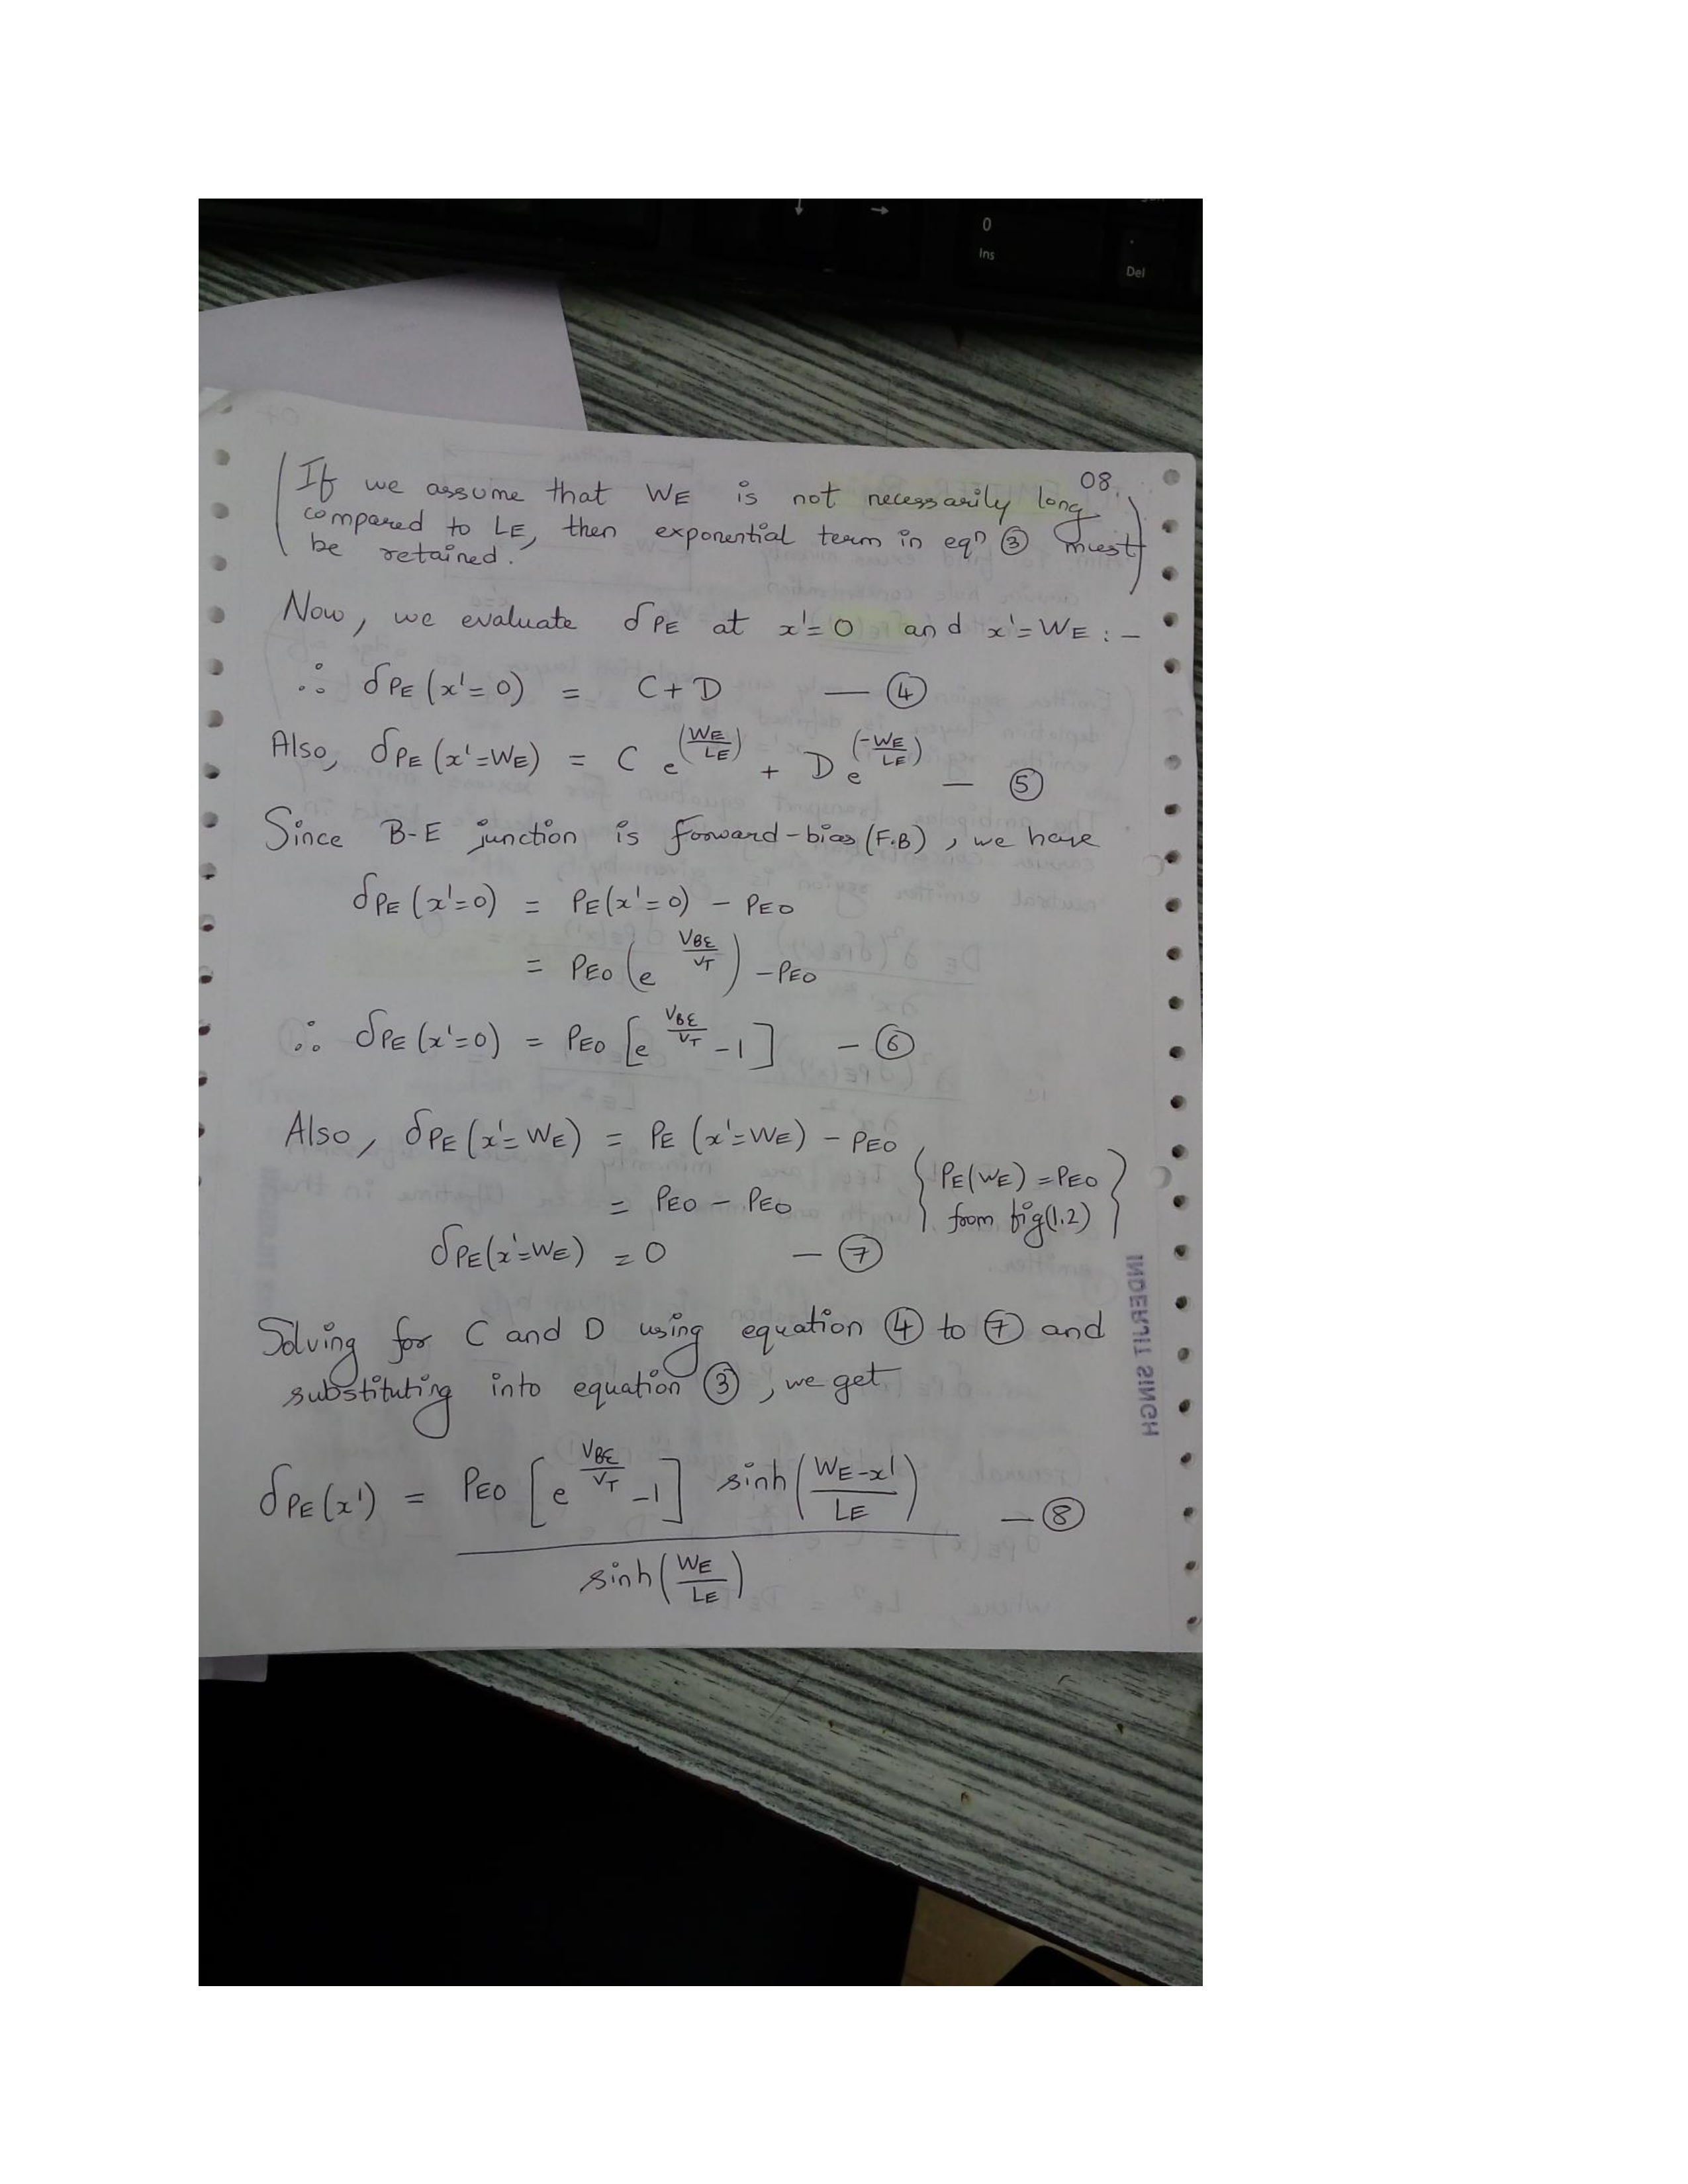 ↓ →
0
Ins
.
Del
08.
(If we assume that WE is not necessarily long
compared to LE, then exponential term in eqn ③ must
be retained.)
Now, we evaluate δPE at x'=0 and x'=WE :-
∴ δPE (x'=0) = C+D — ④
Also, δPE (x'=WE) = C e^(WE/LE) + D e^(-WE/LE) — ⑤
Since B-E junction is forward-bias (F.B), we have
δPE (x'=0) = PE(x'=0) - PEO
= PEO (e^(VBE/VT)) - PEO
∴ δPE (x'=0) = PEO [e^(VBE/VT) -1] — ⑥
Also, δPE (x'=WE) = PE (x'=WE) - PEO
= PEO - PEO {PE(WE) = PEO
from fig(1.2)}
δPE(x'=WE) = 0 — ⑦
Solving for C and D using equation ④ to ⑦ and
substituting into equation ③, we get
δPE(x') = PEO [e^(VBE/VT) -1] sinh((WE-x')/LE) — ⑧
sinh(WE/LE)
INDERJIT SINGH